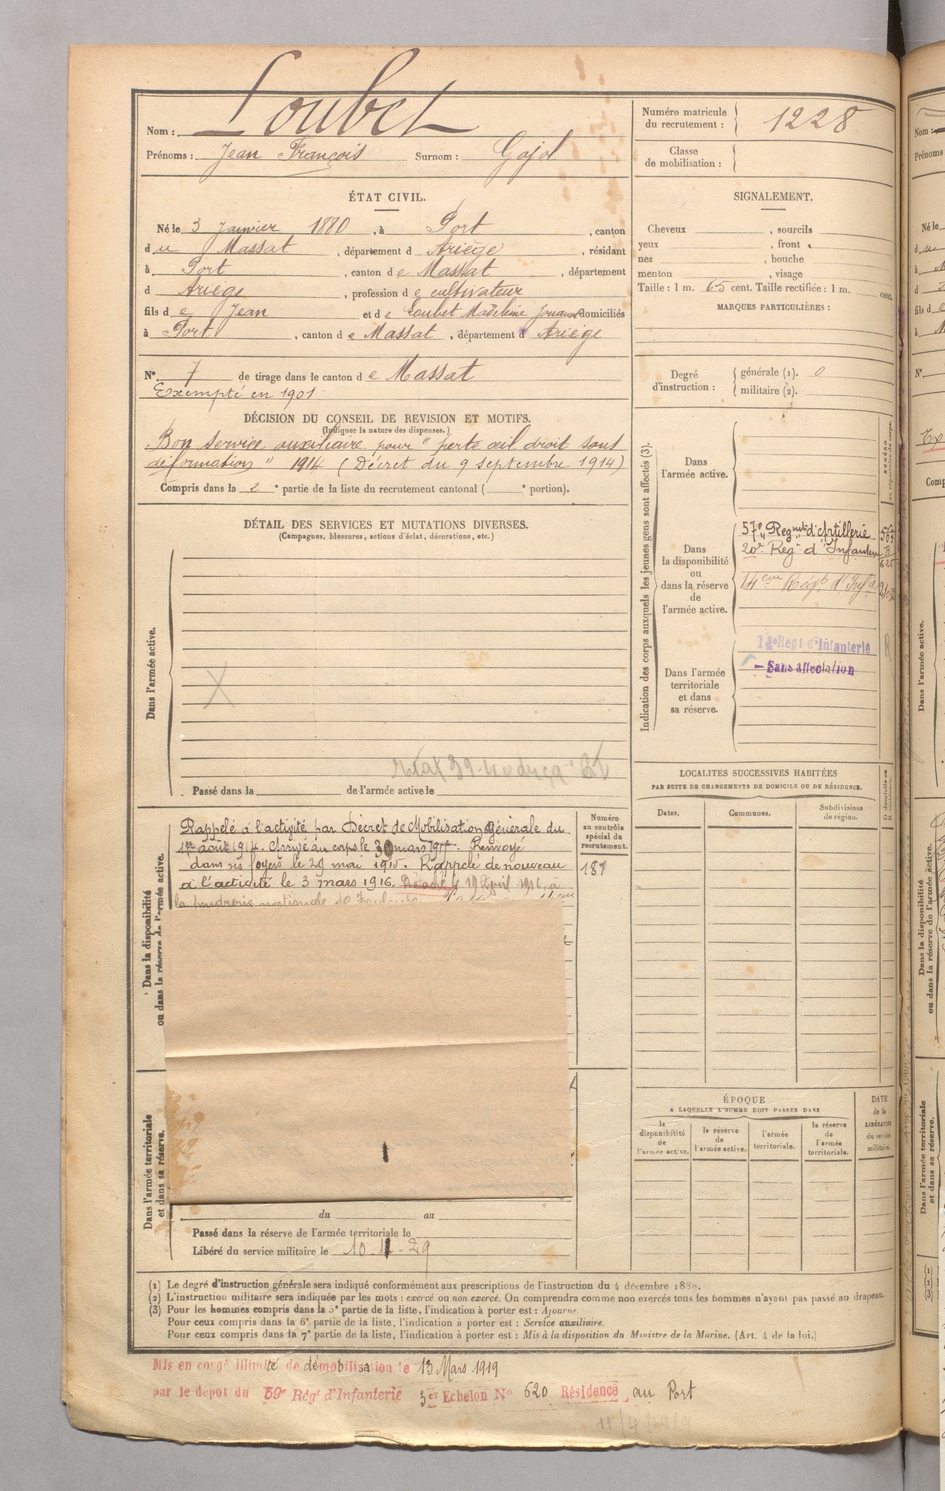 Nom : Loubet
Prénoms : Jean François Surnom : Gojol
Numéro matricule du recrutement : 1228
Classe de mobilisation :
ÉTAT CIVIL.
Né le 3 Janvier 1880, à Port, canton
du Massat, département d Ariège, résidant
à Port, canton de Massat, département
d Ariège, profession de cultivateur
fils de Jean et de Loubet Madeleine domiciliés
à Port, canton de Massat, département d Ariège
N° 7 de tirage dans le canton de Massat
Exempté en 1901
DÉCISION DU CONSEIL DE REVISION ET MOTIFS.
(Indiquer la nature des dispenses.)
Bon service auxiliaire pour "perte œil droit sans
déformation" 1914 (Décret du 9 septembre 1914)
Compris dans la 2e partie de la liste du recrutement cantonal ( e portion).
DÉTAIL DES SERVICES ET MUTATIONS DIVERSES.
(Campagnes, blessures, actions d'éclat, décorations, etc.)
Dans l'armée active.
Passé dans la de l'armée active le
Dans la disponibilité
ou dans la réserve de l'armée active.
Rappelé à l'activité par Décret de Mobilisation Générale du
1er août 1914. Arrivé au corps le 30 mars 1915. Renvoyé
dans ses foyers le 29 mai 1915. Rappelé de nouveau
à l'activité le 3 mars 1916. Détaché le 19 Avril 1916, à
la poudrerie nationale de Toulouse
Numéro au contrôle spécial du recrutement.
187
Dans l'armée territoriale
et dans sa réserve.
du au
Passé dans la réserve de l'armée territoriale le
Libéré du service militaire le 10-11-29
SIGNALEMENT.
Cheveux , sourcils
yeux , front
nez , bouche
menton , visage
Taille : 1 m. 65 cent. Taille rectifiée : 1 m. cent.
MARQUES PARTICULIÈRES :
Degré d'instruction : générale (1). 0
militaire (2).
Indication des corps auxquels les jeunes gens sont affectés (3).
Dans l'armée active.
Dans la disponibilité ou dans la réserve de l'armée active.
57e Regiment d'Artillerie
20e Reg. d'Infanterie
14eme Régt d'Inftie
Dans l'armée territoriale et dans sa réserve.
Regt d'Infanterie
Sans affectation
LOCALITES SUCCESSIVES HABITÉES
PAR SUITE DE CHANGEMENTS DE DOMICILE OU DE RÉSIDENCE.
Dates. Communes. Subdivisions de région.
ÉPOQUE
A LAQUELLE L'HOMME DOIT PASSER DANS
la disponibilité de l'armée active. la réserve de l'armée active. l'armée territoriale. la réserve de l'armée territoriale.
DATE de la LIBÉRATION du service militaire.
(1) Le degré d'instruction générale sera indiqué conformément aux prescriptions de l'instruction du 4 décembre 1889.
(2) L'instruction militaire sera indiquée par les mots : exercé ou non exercé. On comprendra comme non exercés tous les hommes n'ayant pas passé au drapeau.
(3) Pour les hommes compris dans la 5e partie de la liste, l'indication à porter est : Ajourné.
Pour ceux compris dans la 6e partie de la liste, l'indication à porter est : Service auxiliaire.
Pour ceux compris dans la 7e partie de la liste, l'indication à porter est : Mis à la disposition du Ministre de la Marine. (Art. 4 de la loi.)
Mis en congé illimité de démobilisation le 13 Mars 1919
par le dépôt du 59e Régt d'Infanterie 3er Echelon N° 620 Résidence au Port